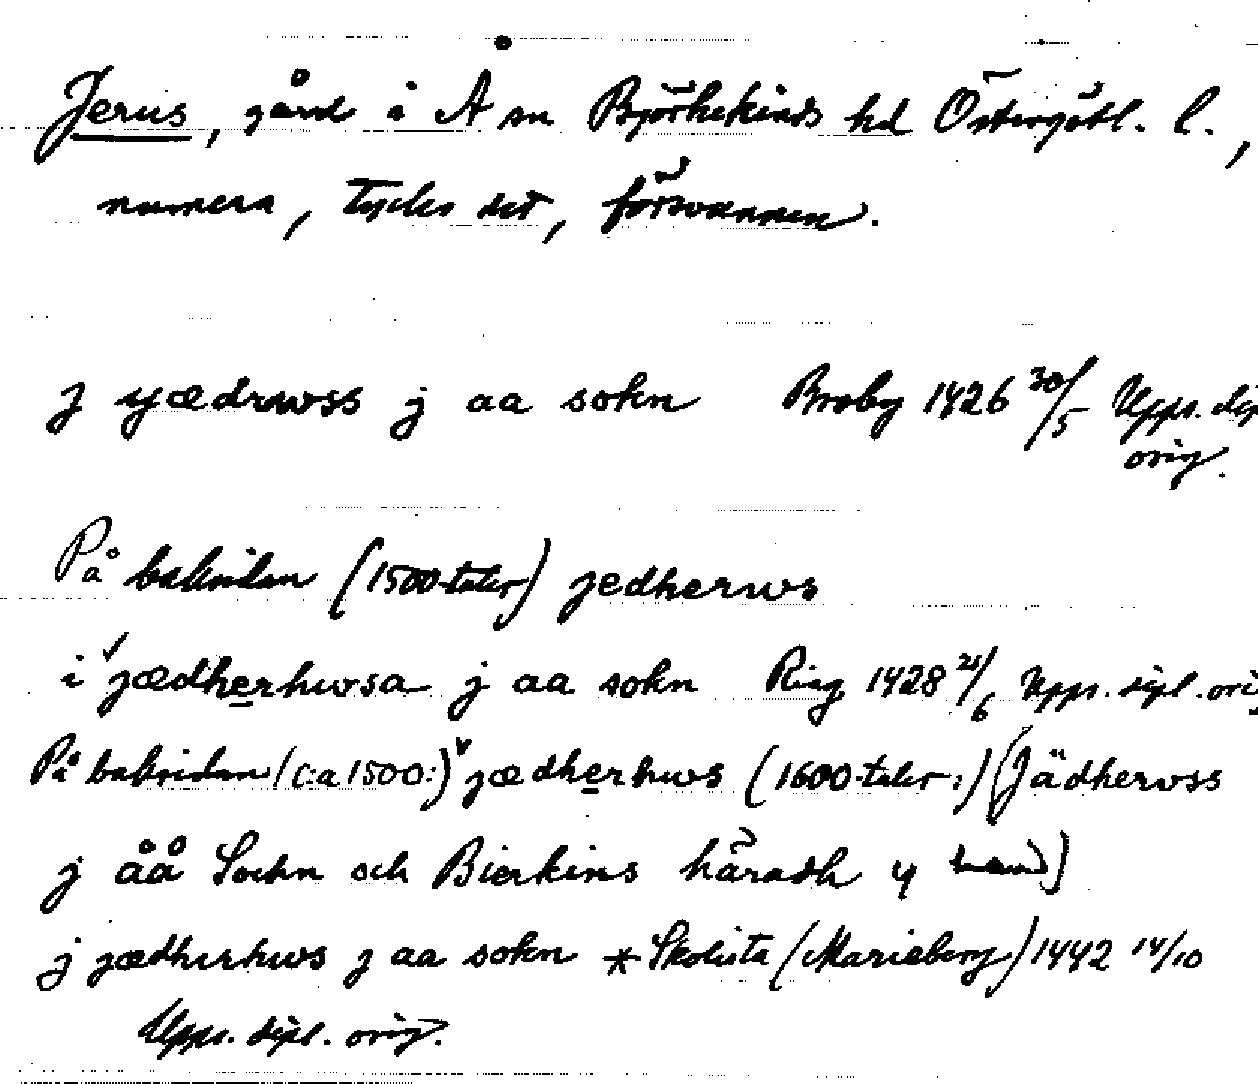 Jerus, gård i Å sn Björkekinds hd Östergötl. l.,
numera, tycks det, försvunnen.
j yædrwss j aa sokn Broby 1426 30/5 Upps. dip
orig.
På baksidan (1500-talet) jedherws
i jædherhwsa j aa sokn Ring 1428 21/6 Upps. dipl. ori
På baksidan (c:a 1500:) jædherhws (1600-talet:) (Jädherwss
j åå Sochn och Bierkins häradh
j jædherhws j aa sokn * Skolista (Marieberg) 1442 14/10
Upps. dipl. orig.